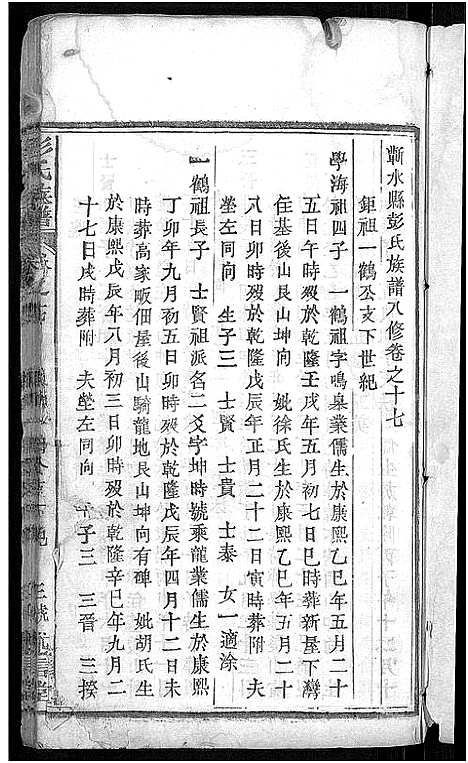 蘄水縣彭氏族譜八修卷之十七
鉅祖一鶴公支下世紀
學海祖四子 一鶴祖字鳴臯業儒生於康熙乙巳年五月二十
五日午時歿於乾隆壬戌年五月初七日巳時葬新屋下灣
住基後山艮山坤向 妣徐氏生於康熙乙巳年五月二十
八日卯時歿於乾隆戊辰年正月二十二日寅時葬附 夫
塋左同向 生子三 士賢 士貴 士泰 女一適涂
一鶴祖長子 士賢祖派名二爻字坤時號乘龍業儒生於康熙
丁卯年九月初五日卯時歿於乾隆戊辰年四月十二日未
時葬高家畈佃屋後山騎龍地艮山坤向有碑 妣胡氏生
於康熙戊辰年八月初三日卯時歿於乾隆辛巳年九月二
十七日戌時葬附 夫塋左同向 子三 三晉 三揆